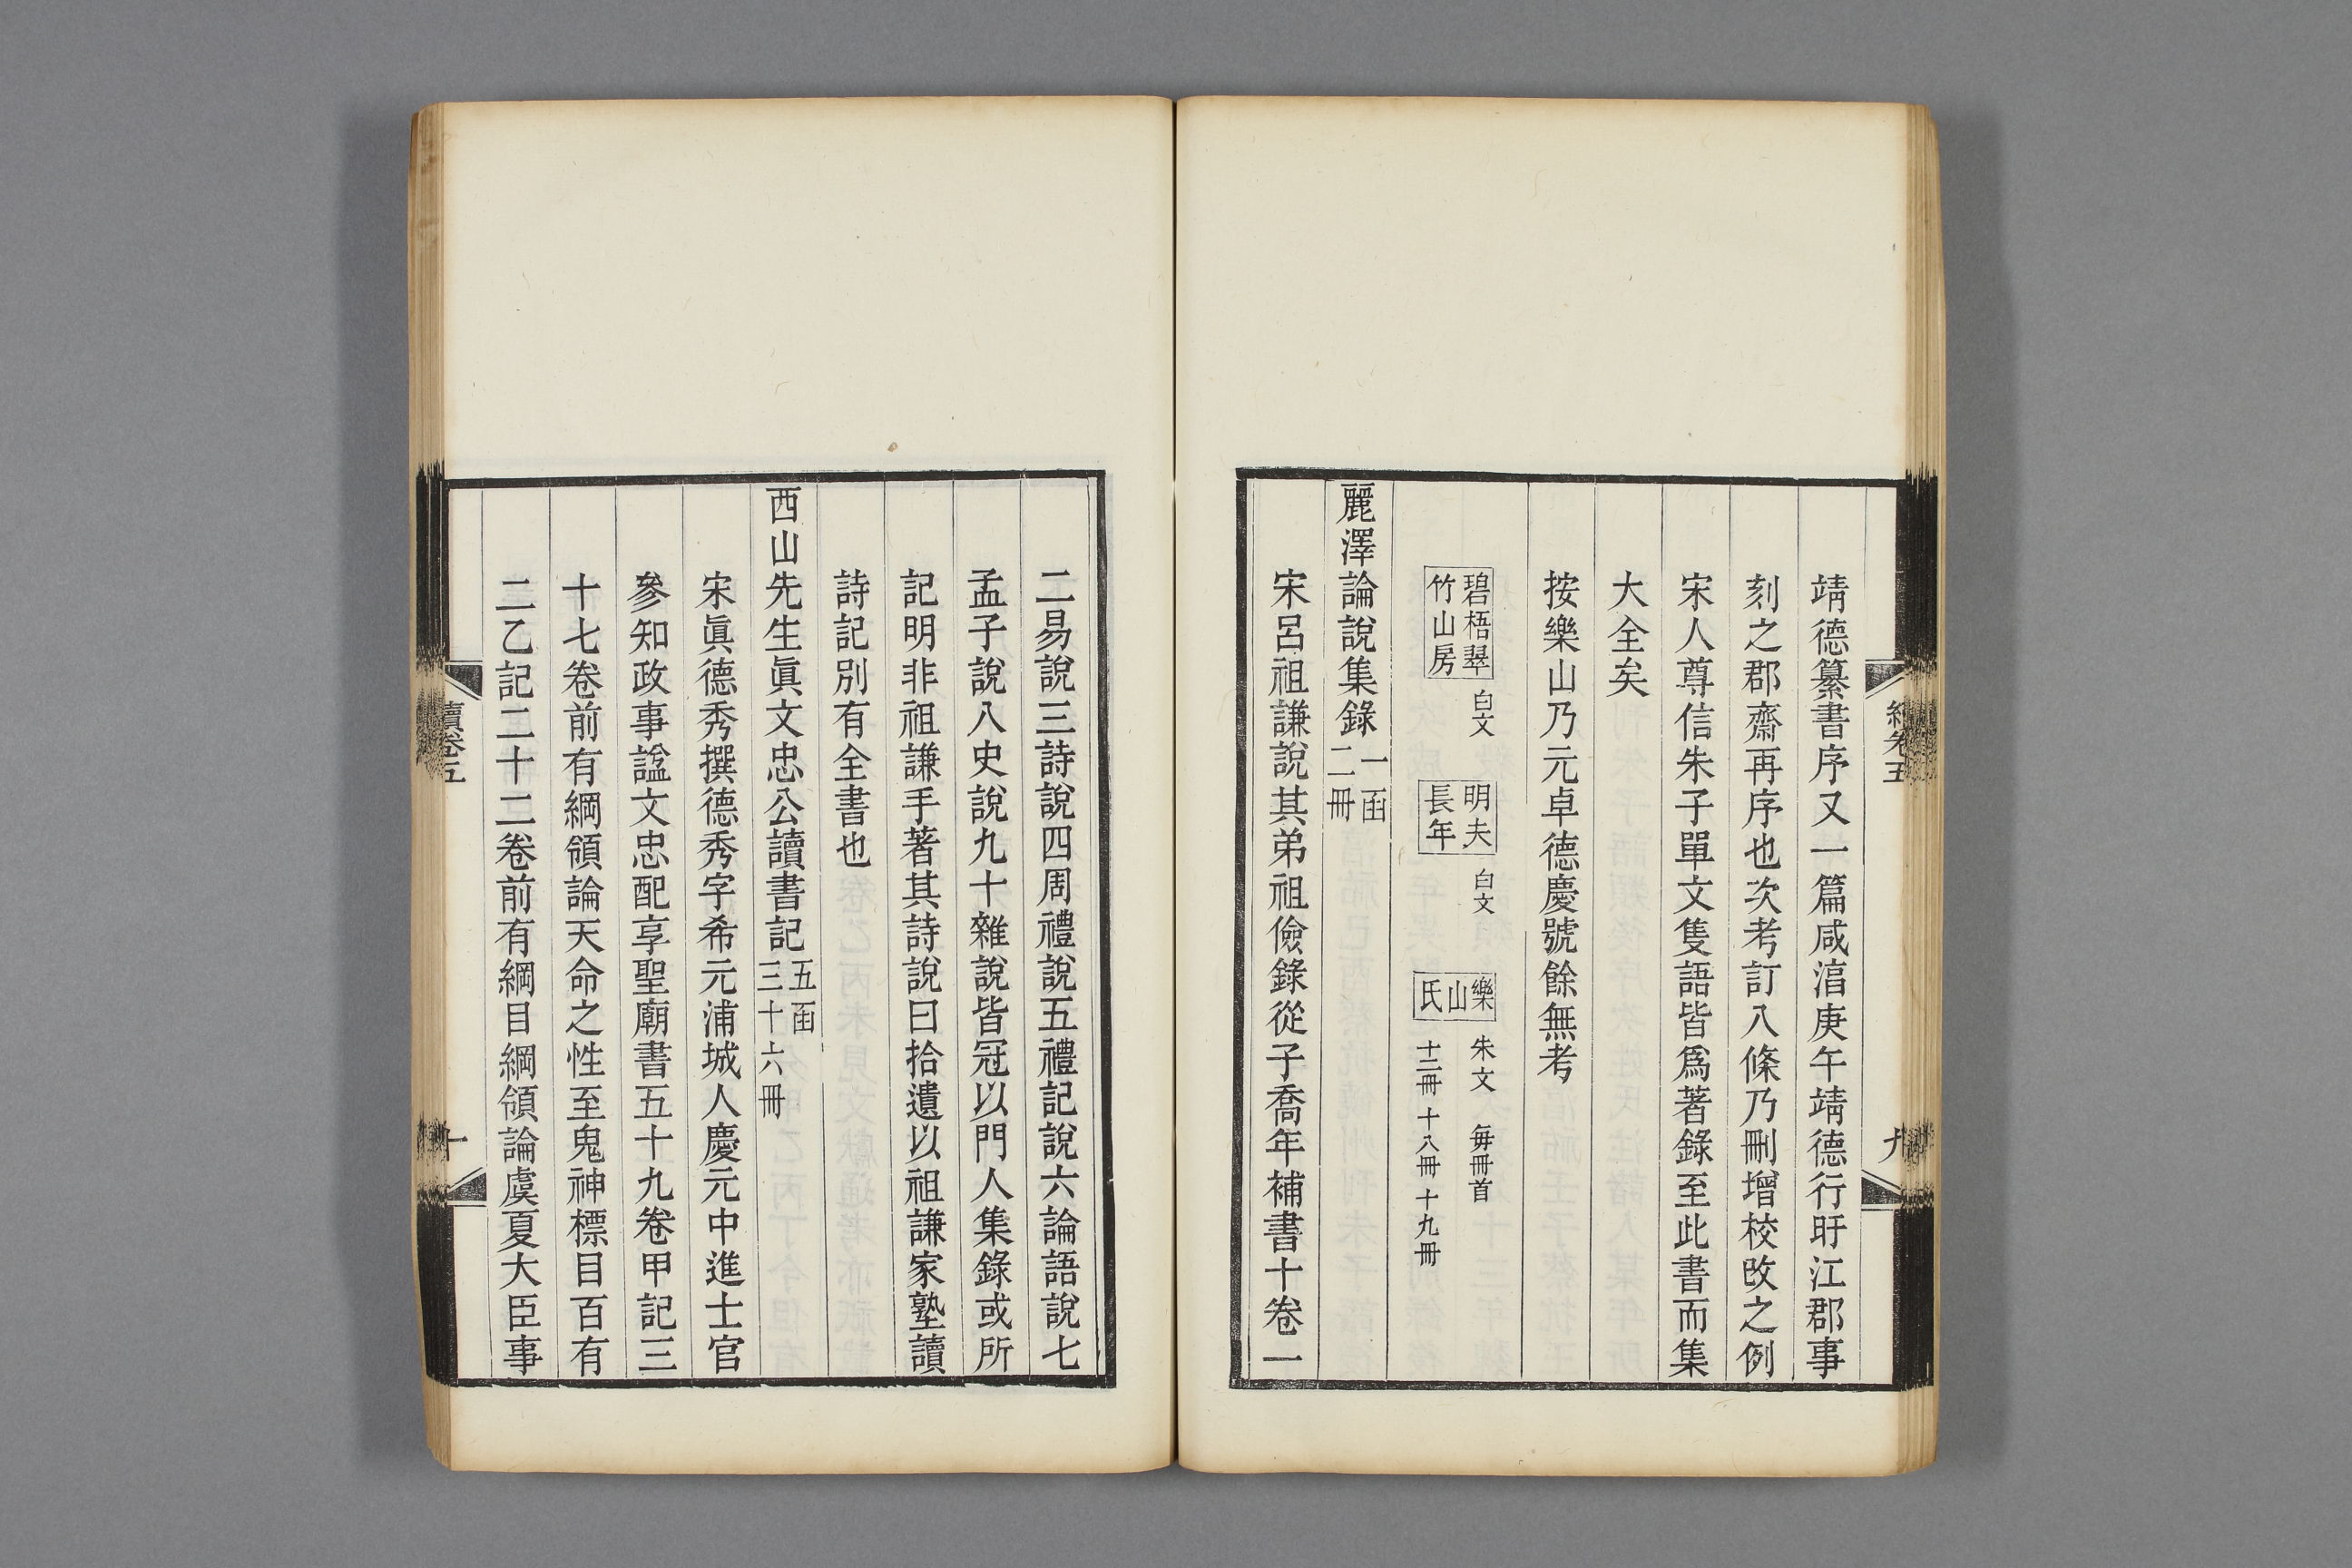 靖德纂書序又一篇咸淳庚午靖德行旴江郡事
刻之郡齋再序也次考訂八條乃刪增校改之例
宋人尊信朱子單文隻語皆爲著錄至此書而集
大全矣
按樂山乃元卓德慶號餘無考
碧梧翠
竹山房
白文
明夫
長年
白文
樂山氏
朱文
每冊首
十二冊 十八冊 十九冊
麗澤論說集錄
一函
二冊
宋呂祖謙說其弟祖儉錄從子喬年補書十卷一
卷五
九
二易說三詩說四周禮說五禮記說六論語說七
孟子說八史說九十雜說皆冠以門人集錄或所
記明非祖謙手著其詩說曰拾遺以祖謙家塾讀
詩記別有全書也
西山先生眞文忠公讀書記
五函
三十六冊
宋眞德秀撰德秀字希元浦城人慶元中進士官
參知政事諡文忠配享聖廟書五十九卷甲記三
十七卷前有綱領論天命之性至鬼神標目百有
二乙記二十二卷前有綱目綱領論虞夏大臣事
卷五
十